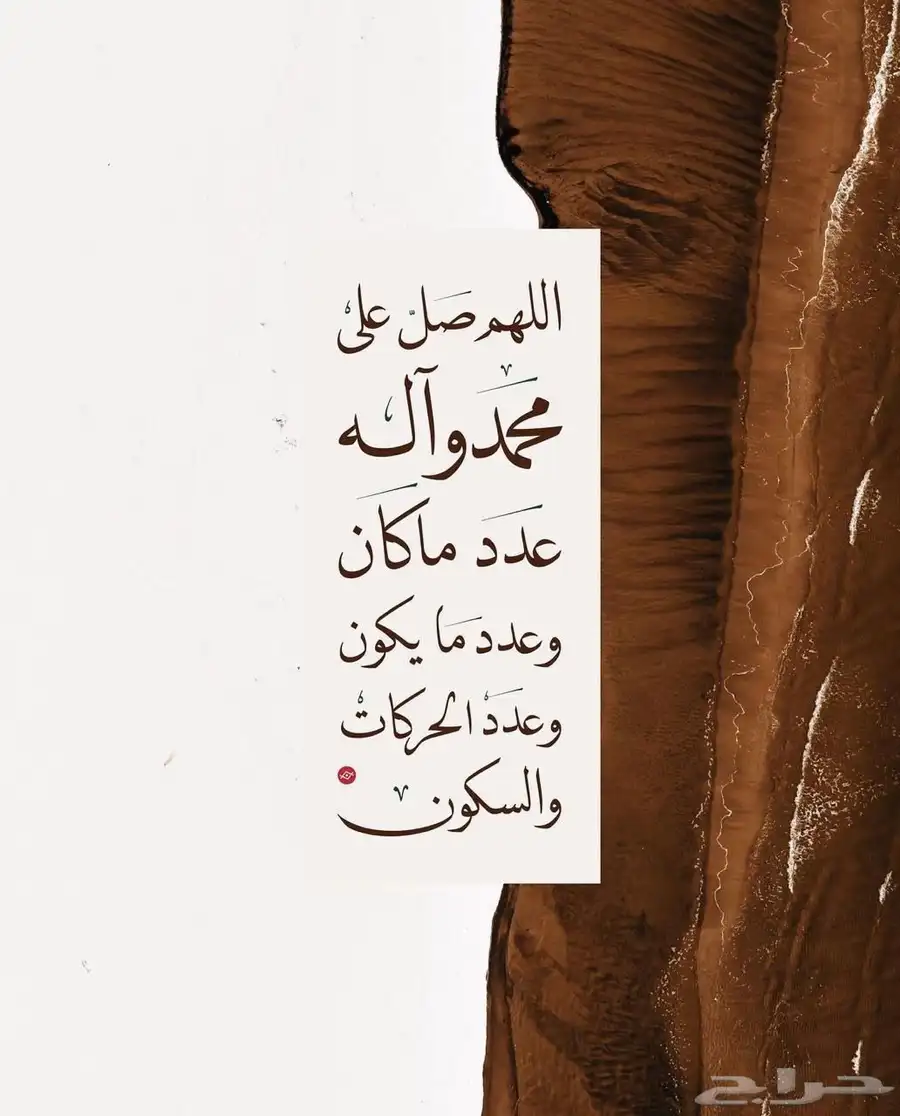 اللهم صَلّ على
محمَد وآله
عدَد ماكَان
وعددَ مَا يكون
وعدَدَ الحركات
والسكون
حراج